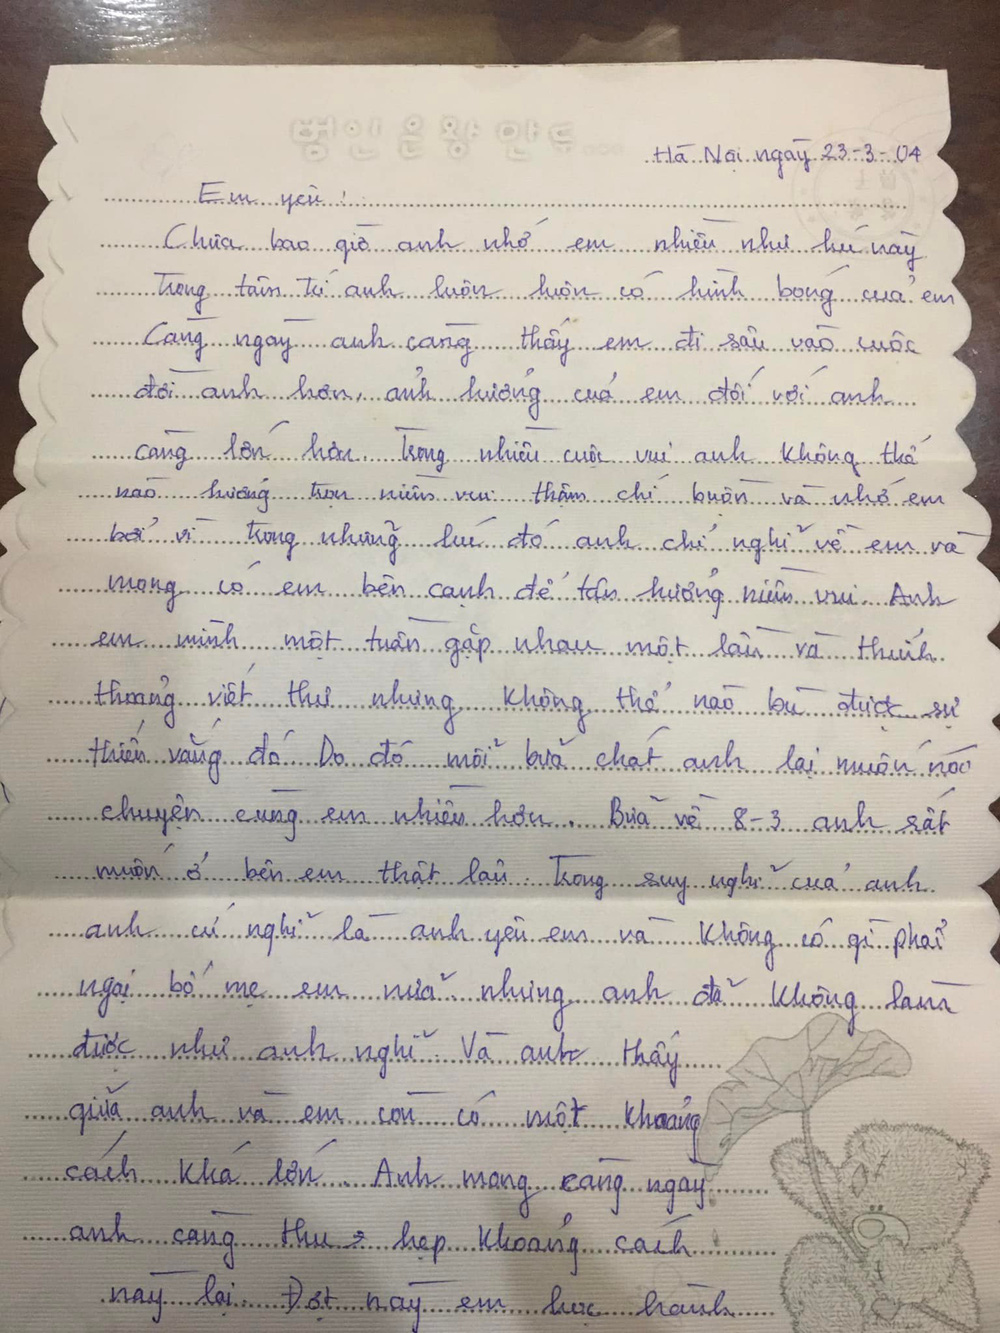 Hà Nội ngày 23-3-04
Em yêu!
Chưa bao giờ anh nhớ em nhiều như lúc này
Trong tâm trí anh luôn luôn có hình bóng của em
Càng ngày anh càng thấy em đi sâu vào cuộc
đời anh hơn, ảnh hưởng của em đối với anh
càng lớn hơn. Trong nhiều cuộc vui anh không thể
nào hưởng trọn niềm vui thậm chí buồn và nhớ em
bởi vì trong những lúc đó anh chỉ nghĩ về em và
mong có em bên cạnh để tận hưởng niềm vui. Anh
em mình một tuần gặp nhau một lần và thỉnh
thoảng viết thư nhưng không thể nào bù được sự
thiếu vắng đó. Do đó mỗi bữa chát anh lại muốn nói
chuyện cùng em nhiều hơn. Bữa về 8-3 anh rất
muốn ở bên em thật lâu. Trong suy nghĩ của anh
anh cứ nghĩ là anh yêu em và không có gì phải
ngại bố mẹ em nữa nhưng anh đã không làm
được như anh nghĩ. Và anh thấy
giữa anh và em còn có một khoảng
cách khá lớn. Anh mong càng ngày
anh càng thu hẹp khoảng cách
này lại. Đợt này em thực hành